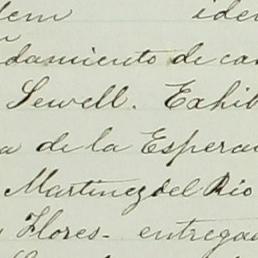 dem iden
damiento de can
Sewell. Exhib
a de la Espera
Martinez del Rio
Flores - entrega